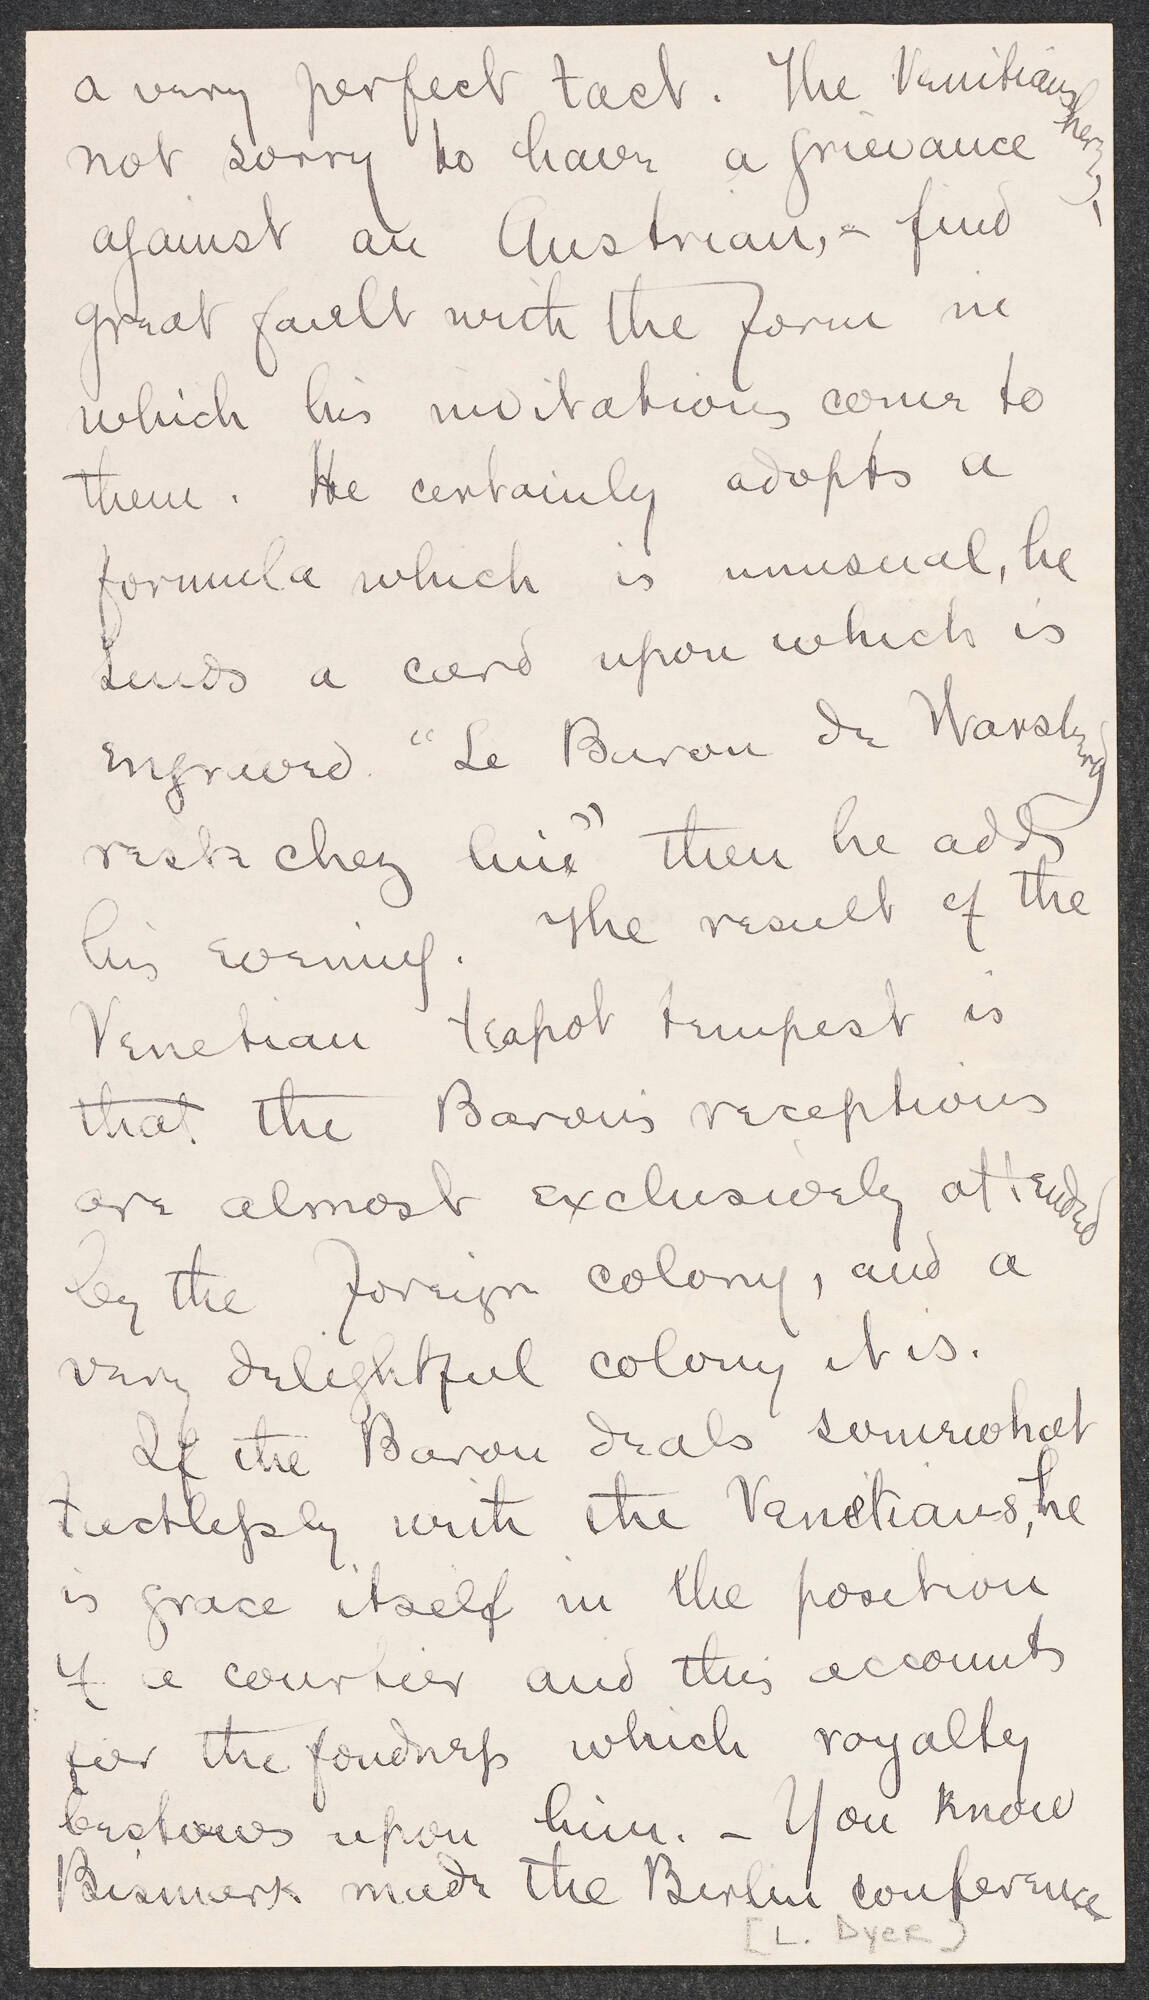 a very perfect tact. The Venitians here, -
not sorry to have a grievance
against an Austrian, - find
great fault with the form in
which his invitations come to
them. He certainly adopts a
formula which is unusual, he
sends a card upon which is
engraved "Le Baron de Warsberg
reste chez lui" then he adds
his evening. The result of the
Venetian teapot tempest is
that the Baron's receptions
are almost exclusively attended
by the foreign colony, and a
very delightful colony it is.
If the Baron deals somewhat
tactlessly with the Venetians, he
is grace itself in the position
of a courtier and this accounts
for the fondness which royalty
bestows upon him. - You know
Bismark made the Berlin conference
[L. Dyer]